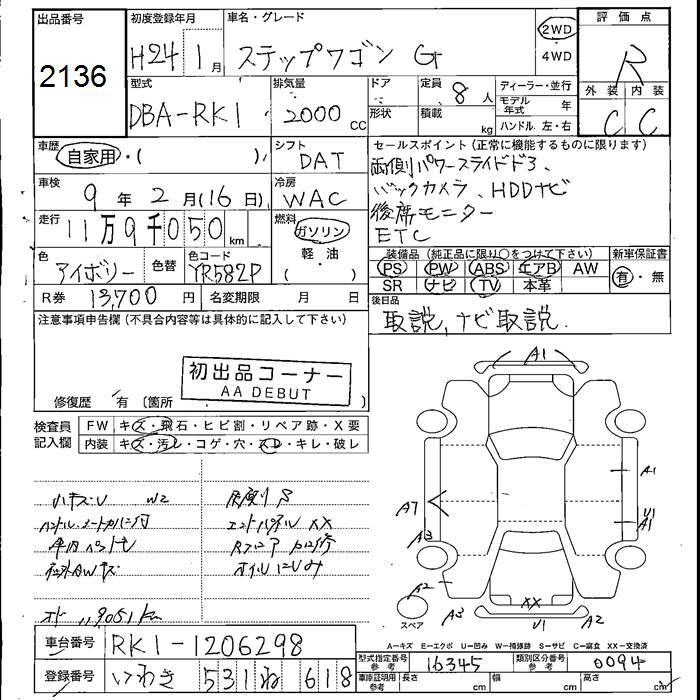 出品番号
2136
初度登録年月
H24 1月
車名・グレード
ステップワゴン G
2WD
4WD
評価点
R
外装 内装
C C
型式
DBA-RK1
排気量
2000 CC
ドア
形状
定員 8人
積載 kg
ディーラー・並行
モデル年式 年
ハンドル 左・右
車歴
自家用・( )
シフト
DAT
車検
9年2月(16日)
冷房
WAC
走行
11万9千050km
燃料
ガソリン
軽・油
( )
色
アイボリー
色替
色コード
YR582P
R券 13,700円
名変期限 月 日
セールスポイント(正常に機能するものに限ります)
両側パワースライドドア、
バックカメラ、HDDナビ
後席モニター
ETC
装備品(純正品に限り○をつけて下さい)
新車保証書
PS PW ABS エアB AW
SR ナビ TV 本革
有・無
後日品
取説、ナビ取説.
注意事項申告欄(不具合内容等は具体的に記入して下さい)
初出品コーナー
AA DEBUT
修復歴 有(箇所
検査員記入欄
FW キズ・飛石・ヒビ割・リペア跡・X要
内装 キズ・汚レ・コゲ・穴・スレ・キレ・破レ
W2
エンドパネル XX
社外AWキズ
オイルにじみ
A1
A1
U1
A1
A7
A3
A2
A3
XX
U1
A2
スペア
A−キズ E−エクボ U−凹み W−補修跡 S−サビ C−腐食 XX−交換済
車台番号 RK1-1206298
登録番号 いわき 531 ね 618
型式指定番号 参考 16345
類別区分番号 参考 0094
車庫証明用 参考 長さ cm 幅 cm 高さ cm